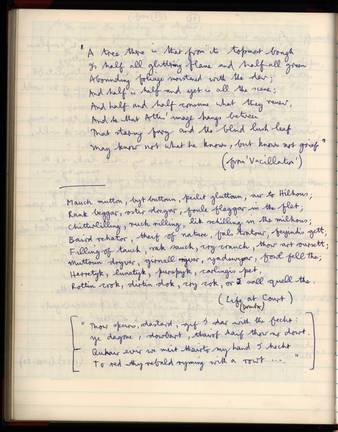 "A tree there is that from its topmost bough
Is half all glittering flame and half all green
Abounding foliage moistened with the dew;
And half is half and yet is all the scene;
And half and half consume what they renew,
And he that Attis' image hangs between
That staring fury and the blind lush leaf
May know not what he knows, but knows not grief"
(from 'Vacillation')
Mauch mutton, byt buttoun, peilit gluttoun, air to Hilhous;
Rank beggar, ostir dregar, foule fleggar in the flet;
Chittirlilling, ruch rilling, lik schilling in the milhous;
Baird rehator, theif of nator, fals tratour, feyindis gett;
Filling of tauch, rak sauch, cry crauch, thow art oursett;
Muttoun dryver, girnall ryver, yadswyvar, fowll fell the;
Herretyk, lunatyk, purspyk, carlingis pet,
Rottin crok, dirtin dok, cry cok, or I sall quell the.
(Life at Court)
"Thow speiris, dastard, gif I dar with the fecht:
Ye dagone, dowbart, thairof haif thow no dowt.
Quhair ever we meit thairto my hand I hecht
To red thy rebald ryming with a rowt ... "